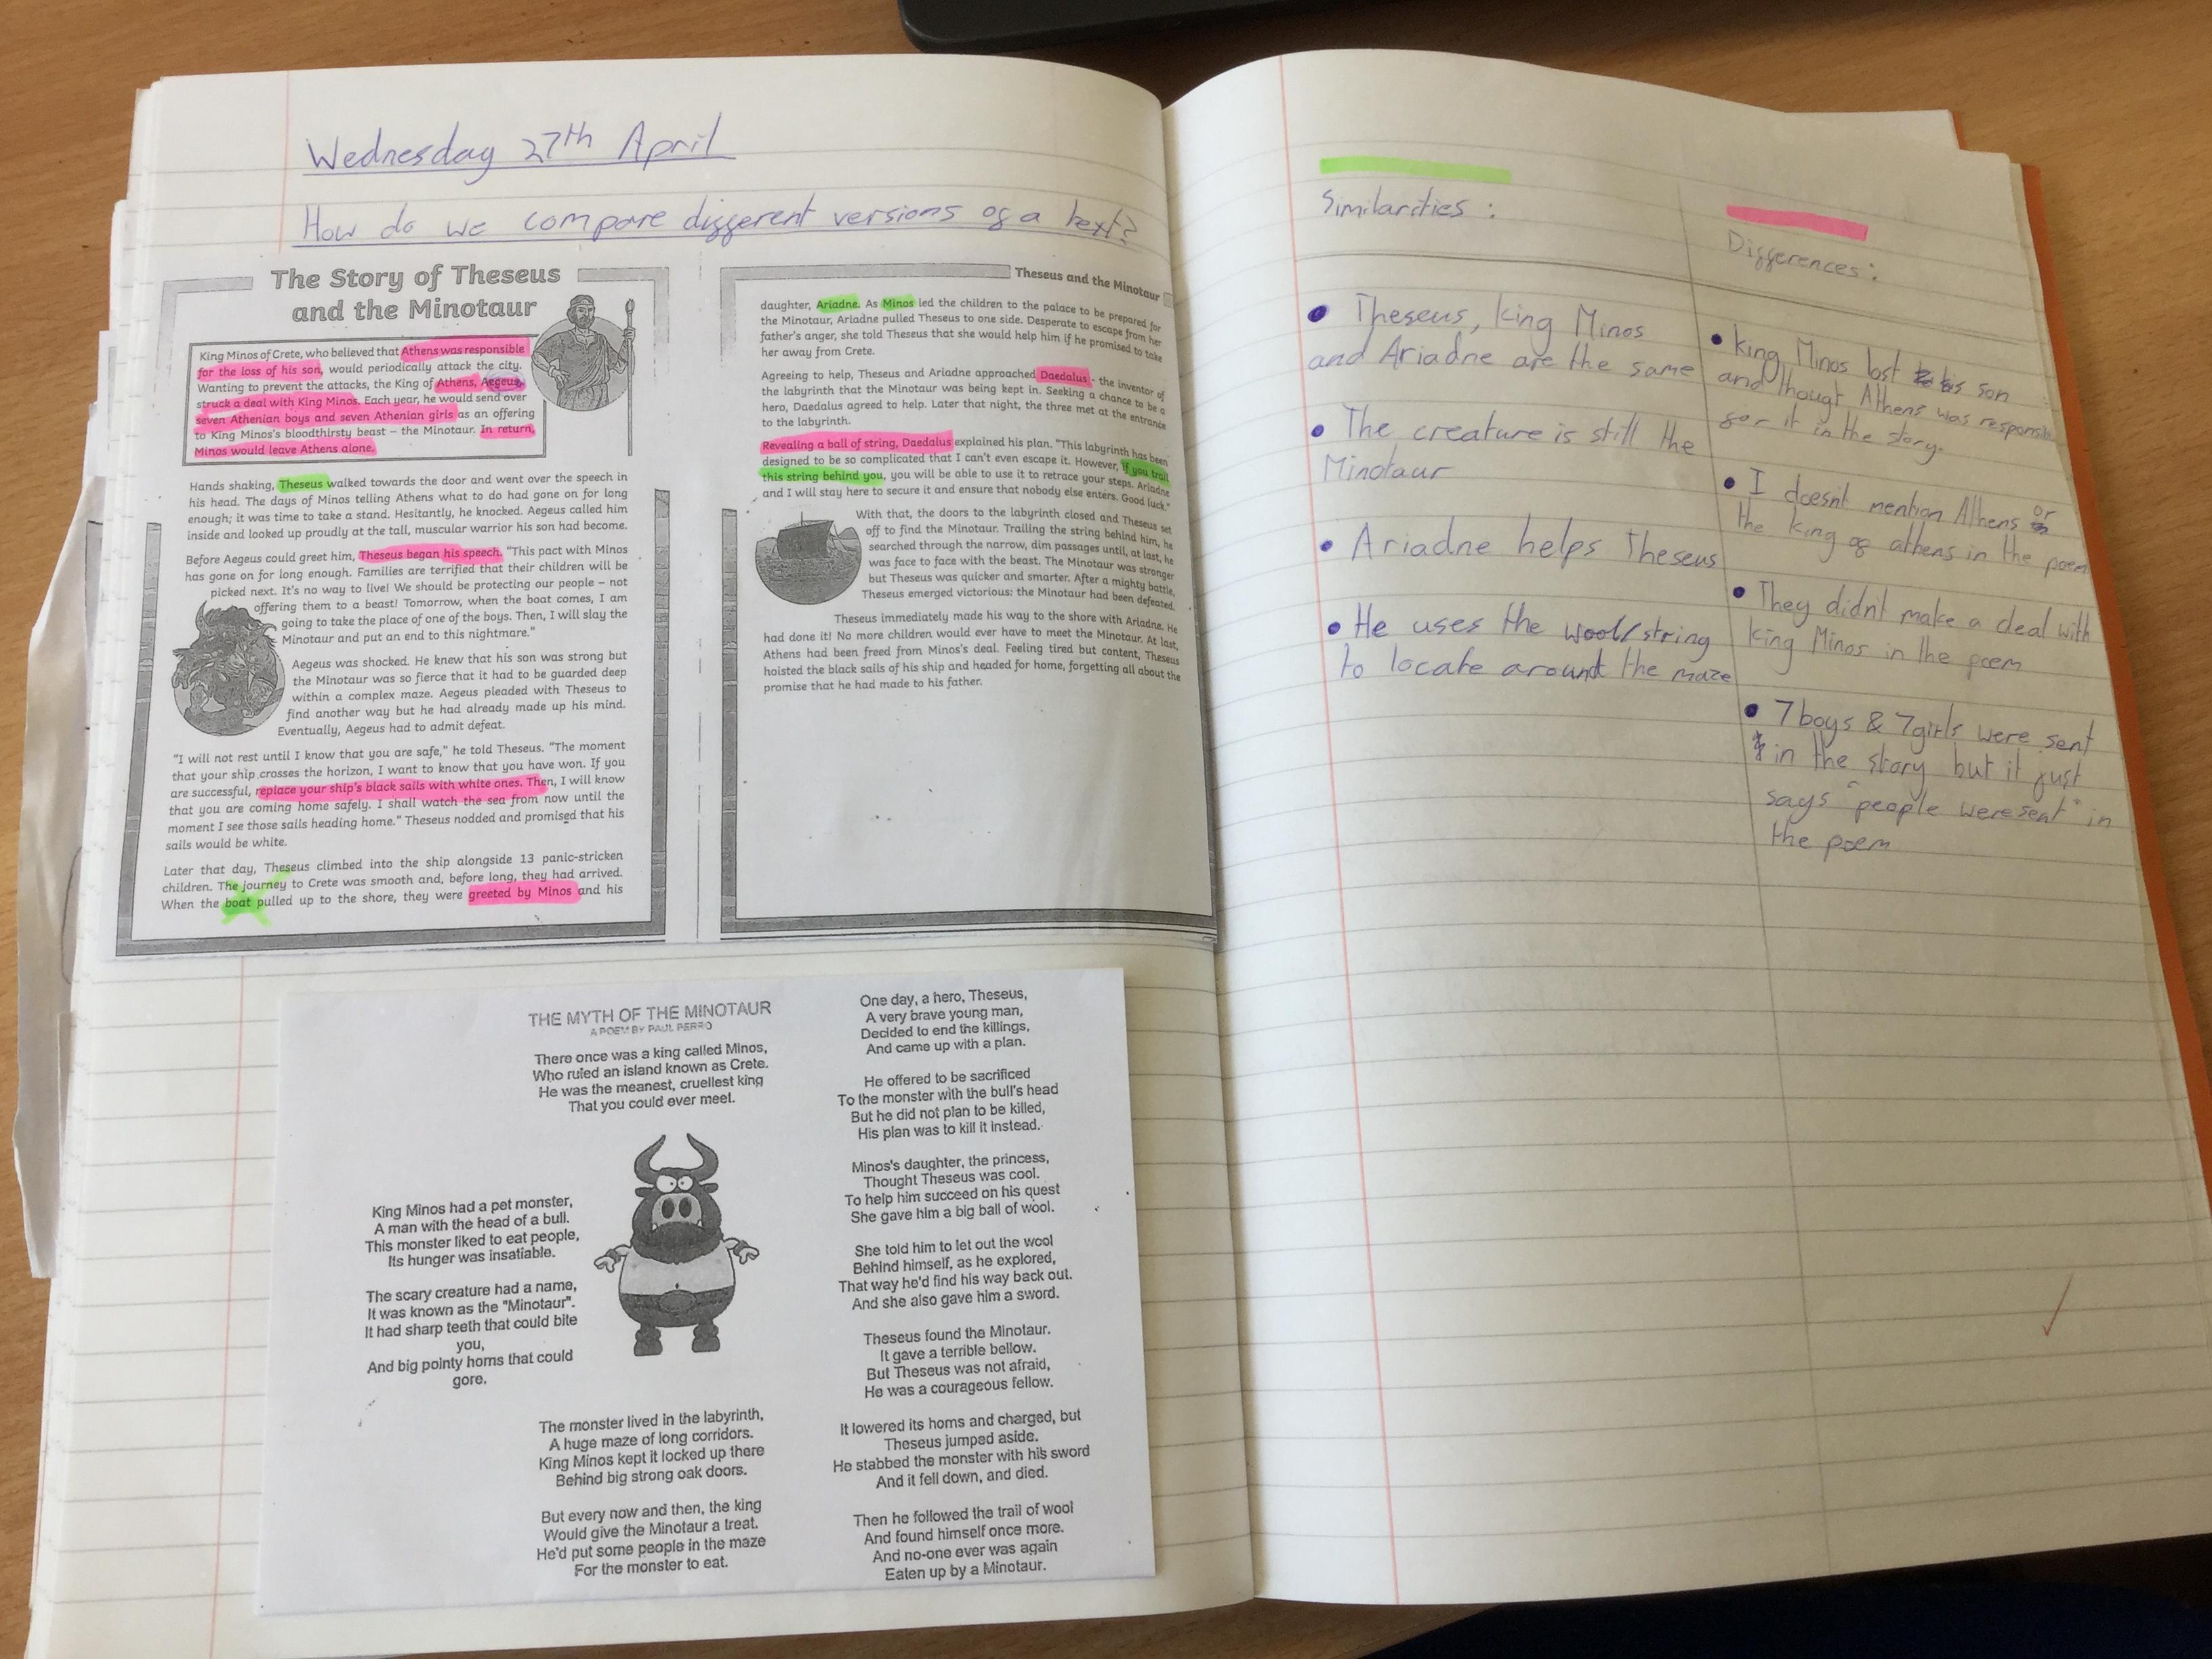 Wednesday 27th April
How do we compare different versions of a text?
The Story of Theseus
and the Minotaur
King Minos of Crete, who believed that Athens was responsible
for the loss of his son, would periodically attack the city.
Wanting to prevent the attacks, the King of Athens, Aegeus,
struck a deal with King Minos. Each year, he would send over
seven Athenian boys and seven Athenian girls as an offering
to King Minos's bloodthirsty beast – the Minotaur. In return,
Minos would leave Athens alone.
Hands shaking, Theseus walked towards the door and went over the speech in
his head. The days of Minos telling Athens what to do had gone on for long
enough; it was time to take a stand. Hesitantly, he knocked. Aegeus called him
inside and looked up proudly at the tall, muscular warrior his son had become.
Before Aegeus could greet him, Theseus began his speech. "This pact with Minos
has gone on for long enough. Families are terrified that their children will be
picked next. It's no way to live! We should be protecting our people – not
offering them to a beast! Tomorrow, when the boat comes, I am
going to take the place of one of the boys. Then, I will slay the
Minotaur and put an end to this nightmare."
Aegeus was shocked. He knew that his son was strong but
the Minotaur was so fierce that it had to be guarded deep
within a complex maze. Aegeus pleaded with Theseus to
find another way but he had already made up his mind.
Eventually, Aegeus had to admit defeat.
"I will not rest until I know that you are safe," he told Theseus. "The moment
that your ship crosses the horizon, I want to know that you have won. If you
are successful, replace your ship's black sails with white ones. Then, I will know
that you are coming home safely. I shall watch the sea from now until the
moment I see those sails heading home." Theseus nodded and promised that his
sails would be white.
Later that day, Theseus climbed into the ship alongside 13 panic-stricken
children. The journey to Crete was smooth and, before long, they had arrived.
When the boat pulled up to the shore, they were greeted by Minos and his
Theseus and the Minotaur
daughter, Ariadne. As Minos led the children to the palace to be prepared for
the Minotaur, Ariadne pulled Theseus to one side. Desperate to escape from her
father's anger, she told Theseus that she would help him if he promised to take
her away from Crete.
Agreeing to help, Theseus and Ariadne approached Daedalus - the inventor of
the labyrinth that the Minotaur was being kept in. Seeking a chance to be a
hero, Daedalus agreed to help. Later that night, the three met at the entrance
to the labyrinth.
Revealing a ball of string, Daedalus explained his plan. "This labyrinth has been
designed to be so complicated that I can't even escape it. However, if you trail
this string behind you, you will be able to use it to retrace your steps. Ariadne
and I will stay here to secure it and ensure that nobody else enters. Good luck."
With that, the doors to the labyrinth closed and Theseus set
off to find the Minotaur. Trailing the string behind him, he
searched through the narrow, dim passages until, at last, he
was face to face with the beast. The Minotaur was stronger
but Theseus was quicker and smarter. After a mighty battle,
Theseus emerged victorious: the Minotaur had been defeated.
Theseus immediately made his way to the shore with Ariadne. He
had done it! No more children would ever have to meet the Minotaur. At last,
Athens had been freed from Minos's deal. Feeling tired but content, Theseus
hoisted the black sails of his ship and headed for home, forgetting all about the
promise that he had made to his father.
THE MYTH OF THE MINOTAUR
A POEM BY PAUL PERRO
There once was a king called Minos,
Who ruled an island known as Crete.
He was the meanest, cruellest king
That you could ever meet.
King Minos had a pet monster,
A man with the head of a bull.
This monster liked to eat people,
Its hunger was insatiable.
The scary creature had a name,
It was known as the "Minotaur".
It had sharp teeth that could bite
you,
And big pointy horns that could
gore.
The monster lived in the labyrinth,
A huge maze of long corridors.
King Minos kept it locked up there
Behind big strong oak doors.
But every now and then, the king
Would give the Minotaur a treat.
He'd put some people in the maze
For the monster to eat.
One day, a hero, Theseus,
A very brave young man,
Decided to end the killings,
And came up with a plan.
He offered to be sacrificed
To the monster with the bull's head
But he did not plan to be killed,
His plan was to kill it instead.
Minos's daughter, the princess,
Thought Theseus was cool.
To help him succeed on his quest
She gave him a big ball of wool.
She told him to let out the wool
Behind himself, as he explored,
That way he'd find his way back out.
And she also gave him a sword.
Theseus found the Minotaur.
It gave a terrible bellow.
But Theseus was not afraid,
He was a courageous fellow.
It lowered its horns and charged, but
Theseus jumped aside.
He stabbed the monster with his sword
And it fell down, and died.
Then he followed the trail of wool
And found himself once more.
And no-one ever was again
Eaten up by a Minotaur.
Similarities :
• Theseus, king Minos
and Ariadne are the same
• The creature is still the
Minotaur
• Ariadne helps Theseus
• He uses the wool/string
to locate around the maze
Differences :
• king Minos lost his son
and thougt Athens was responsib
for it in the story.
• I doesn't mention Athens or
the king of athens in the poem
• They didn't make a deal with
king Minos in the poem
• 7 boys & 7 girls were sent
in the story but it just
says "people were sent" in
the poem